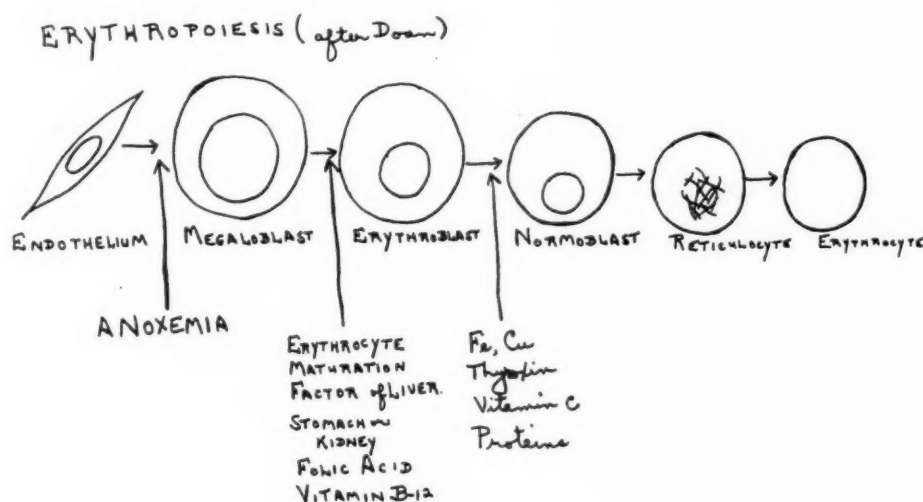 ERYTHROPOIESIS (after Doan)
ENDOTHELIUM MEGALOBLAST ERYTHROBLAST NORMOBLAST RETICULOCYTE ERYTHROCYTE
ANOXEMIA
ERYTHROCYTE
MATURATION
FACTOR of LIVER.
STOMACH or
KIDNEY
FOLIC ACID
VITAMIN B-12
Fe, Cu
Thyroxin
Vitamin C
Proteins